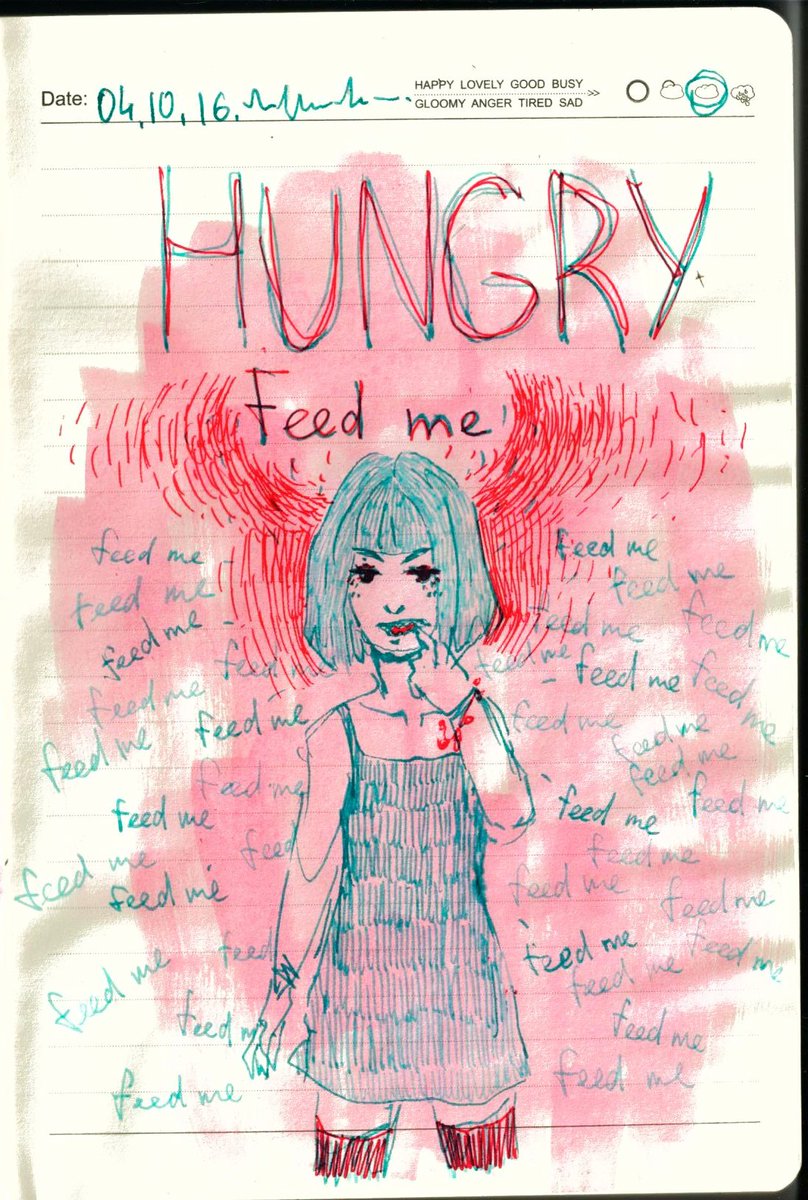 Date: 04.10.16.
HAPPY LOVELY GOOD BUSY
GLOOMY ANGER TIRED SAD >>
HUNGRY
Feed me
feed me
feed me
feed me
feed me
feed me
feed me
feed me
feed me
feed me
feed
feed me
feed me
feed
feed me
feed me
feed me
feed me
feed me
feed me
feed me
feed me
feed me
feed me
feed me
feed me
feed me
feed me
feed me
feed me
feed me
feed me
feed me
feed me
feed me
feed me
feed me